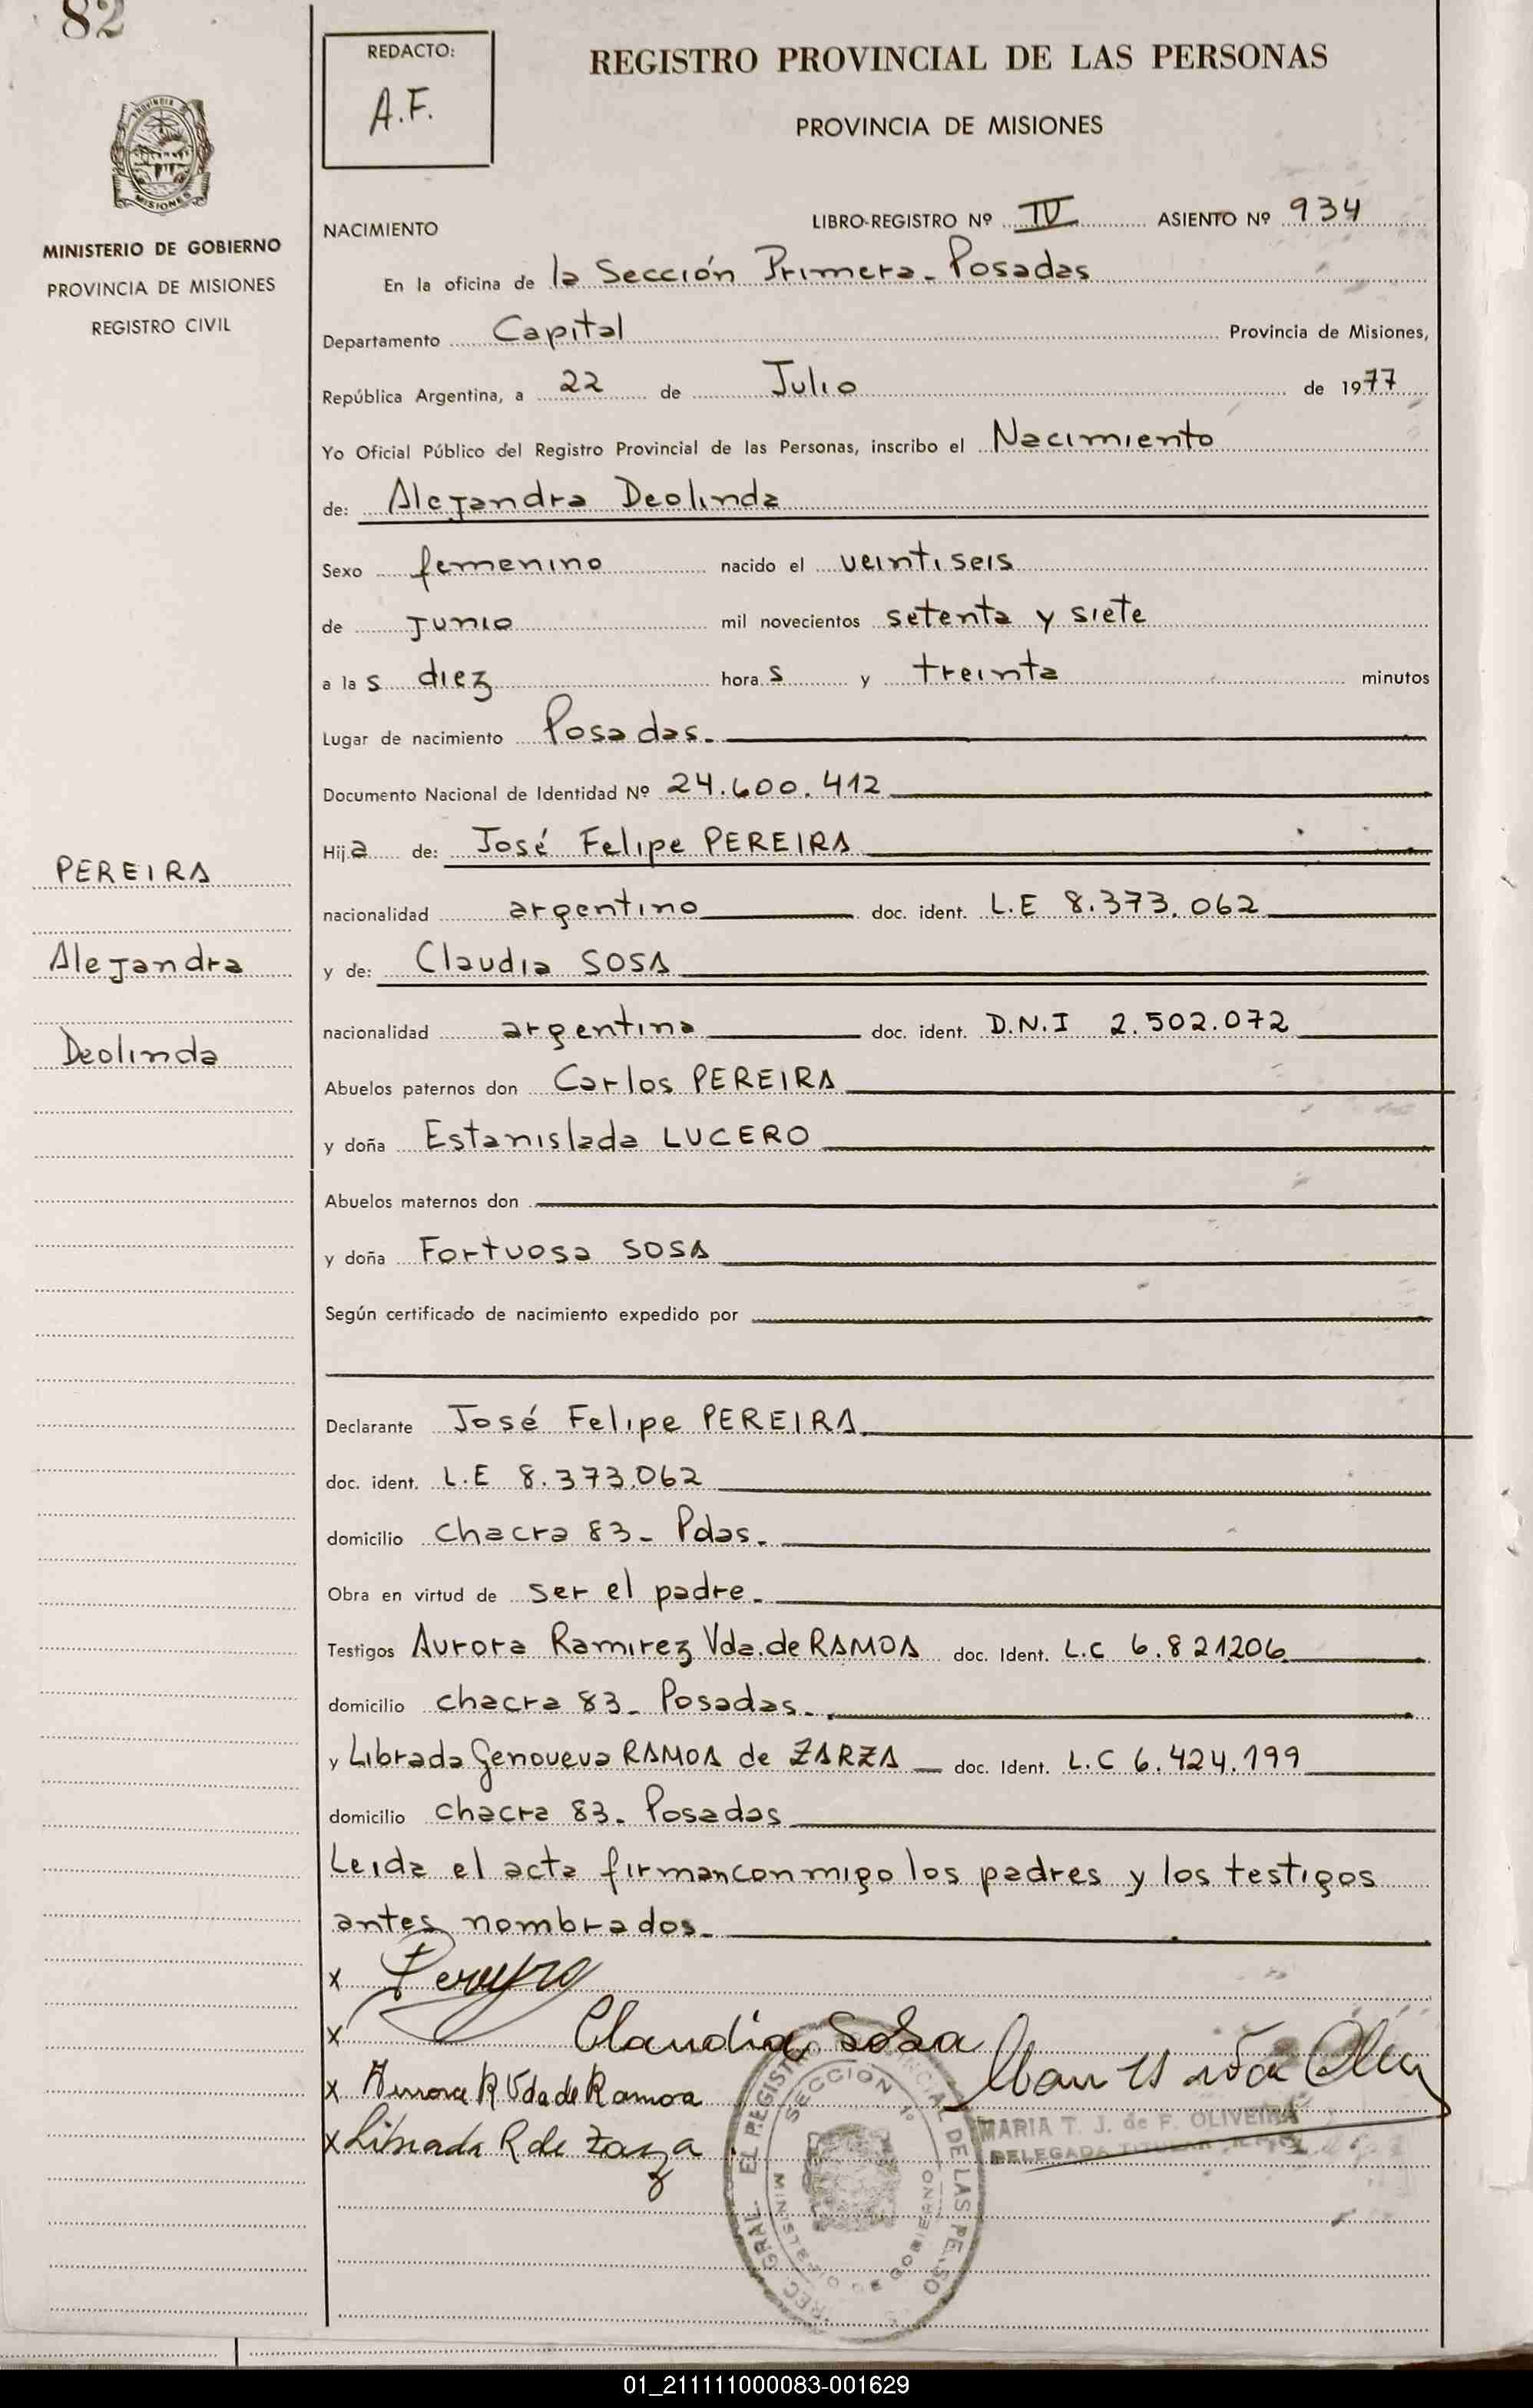 82
MINISTERIO DE GOBIERNO
PROVINCIA DE MISIONES
REGISTRO CIVIL
REDACTO:
A.F.
REGISTRO PROVINCIAL DE LAS PERSONAS
PROVINCIA DE MISIONES
NACIMIENTO
LIBRO-REGISTRO Nº IV ASIENTO Nº 934
En la oficina de la Sección Primera - Posadas
Departamento Capital Provincia de Misiones,
República Argentina, a 22 de Julio de 1977
Yo Oficial Público del Registro Provincial de las Personas, inscribo el Nacimiento
de: Alejandra Deolinda
Sexo femenino nacido el veintiseis
de junio mil novecientos setenta y siete
a las diez horas y treinta minutos
Lugar de nacimiento Posadas.
Documento Nacional de Identidad Nº 24.600.412
Hija de: José Felipe PEREIRA
nacionalidad argentino doc. ident. L.E 8.373.062
y de: Claudia SOSA
nacionalidad argentina doc. ident. D.N.I 2.502.072
Abuelos paternos don Carlos PEREIRA
y doña Estanislada LUCERO
Abuelos maternos don
y doña Fortuosa SOSA
Según certificado de nacimiento expedido por
Declarante José Felipe PEREIRA
doc. ident. L.E 8.373.062
domicilio chacra 83 - Pdas.
Obra en virtud de ser el padre.
Testigos Aurora Ramirez Vda. de RAMOA doc. Ident. L.C 6.821206
domicilio chacra 83 - Posadas.
y Librada Genoveva RAMOA de ZARZA doc. Ident. L.C 6.424.199
domicilio chacra 83. Posadas
Leida el acta firman conmigo los padres y los testigos
antes nombrados.
PEREIRA
Alejandra
Deolinda
x Pereyra
x Claudia Sosa
x Aurora R Vda de Ramoa
x Librada R de Zarza
MARIA T. J. de F. OLIVEIRA
DELEGADA TITULAR
SECCION 1º
MINISTERIO DE GOBIERNO
01_211111000083-001629